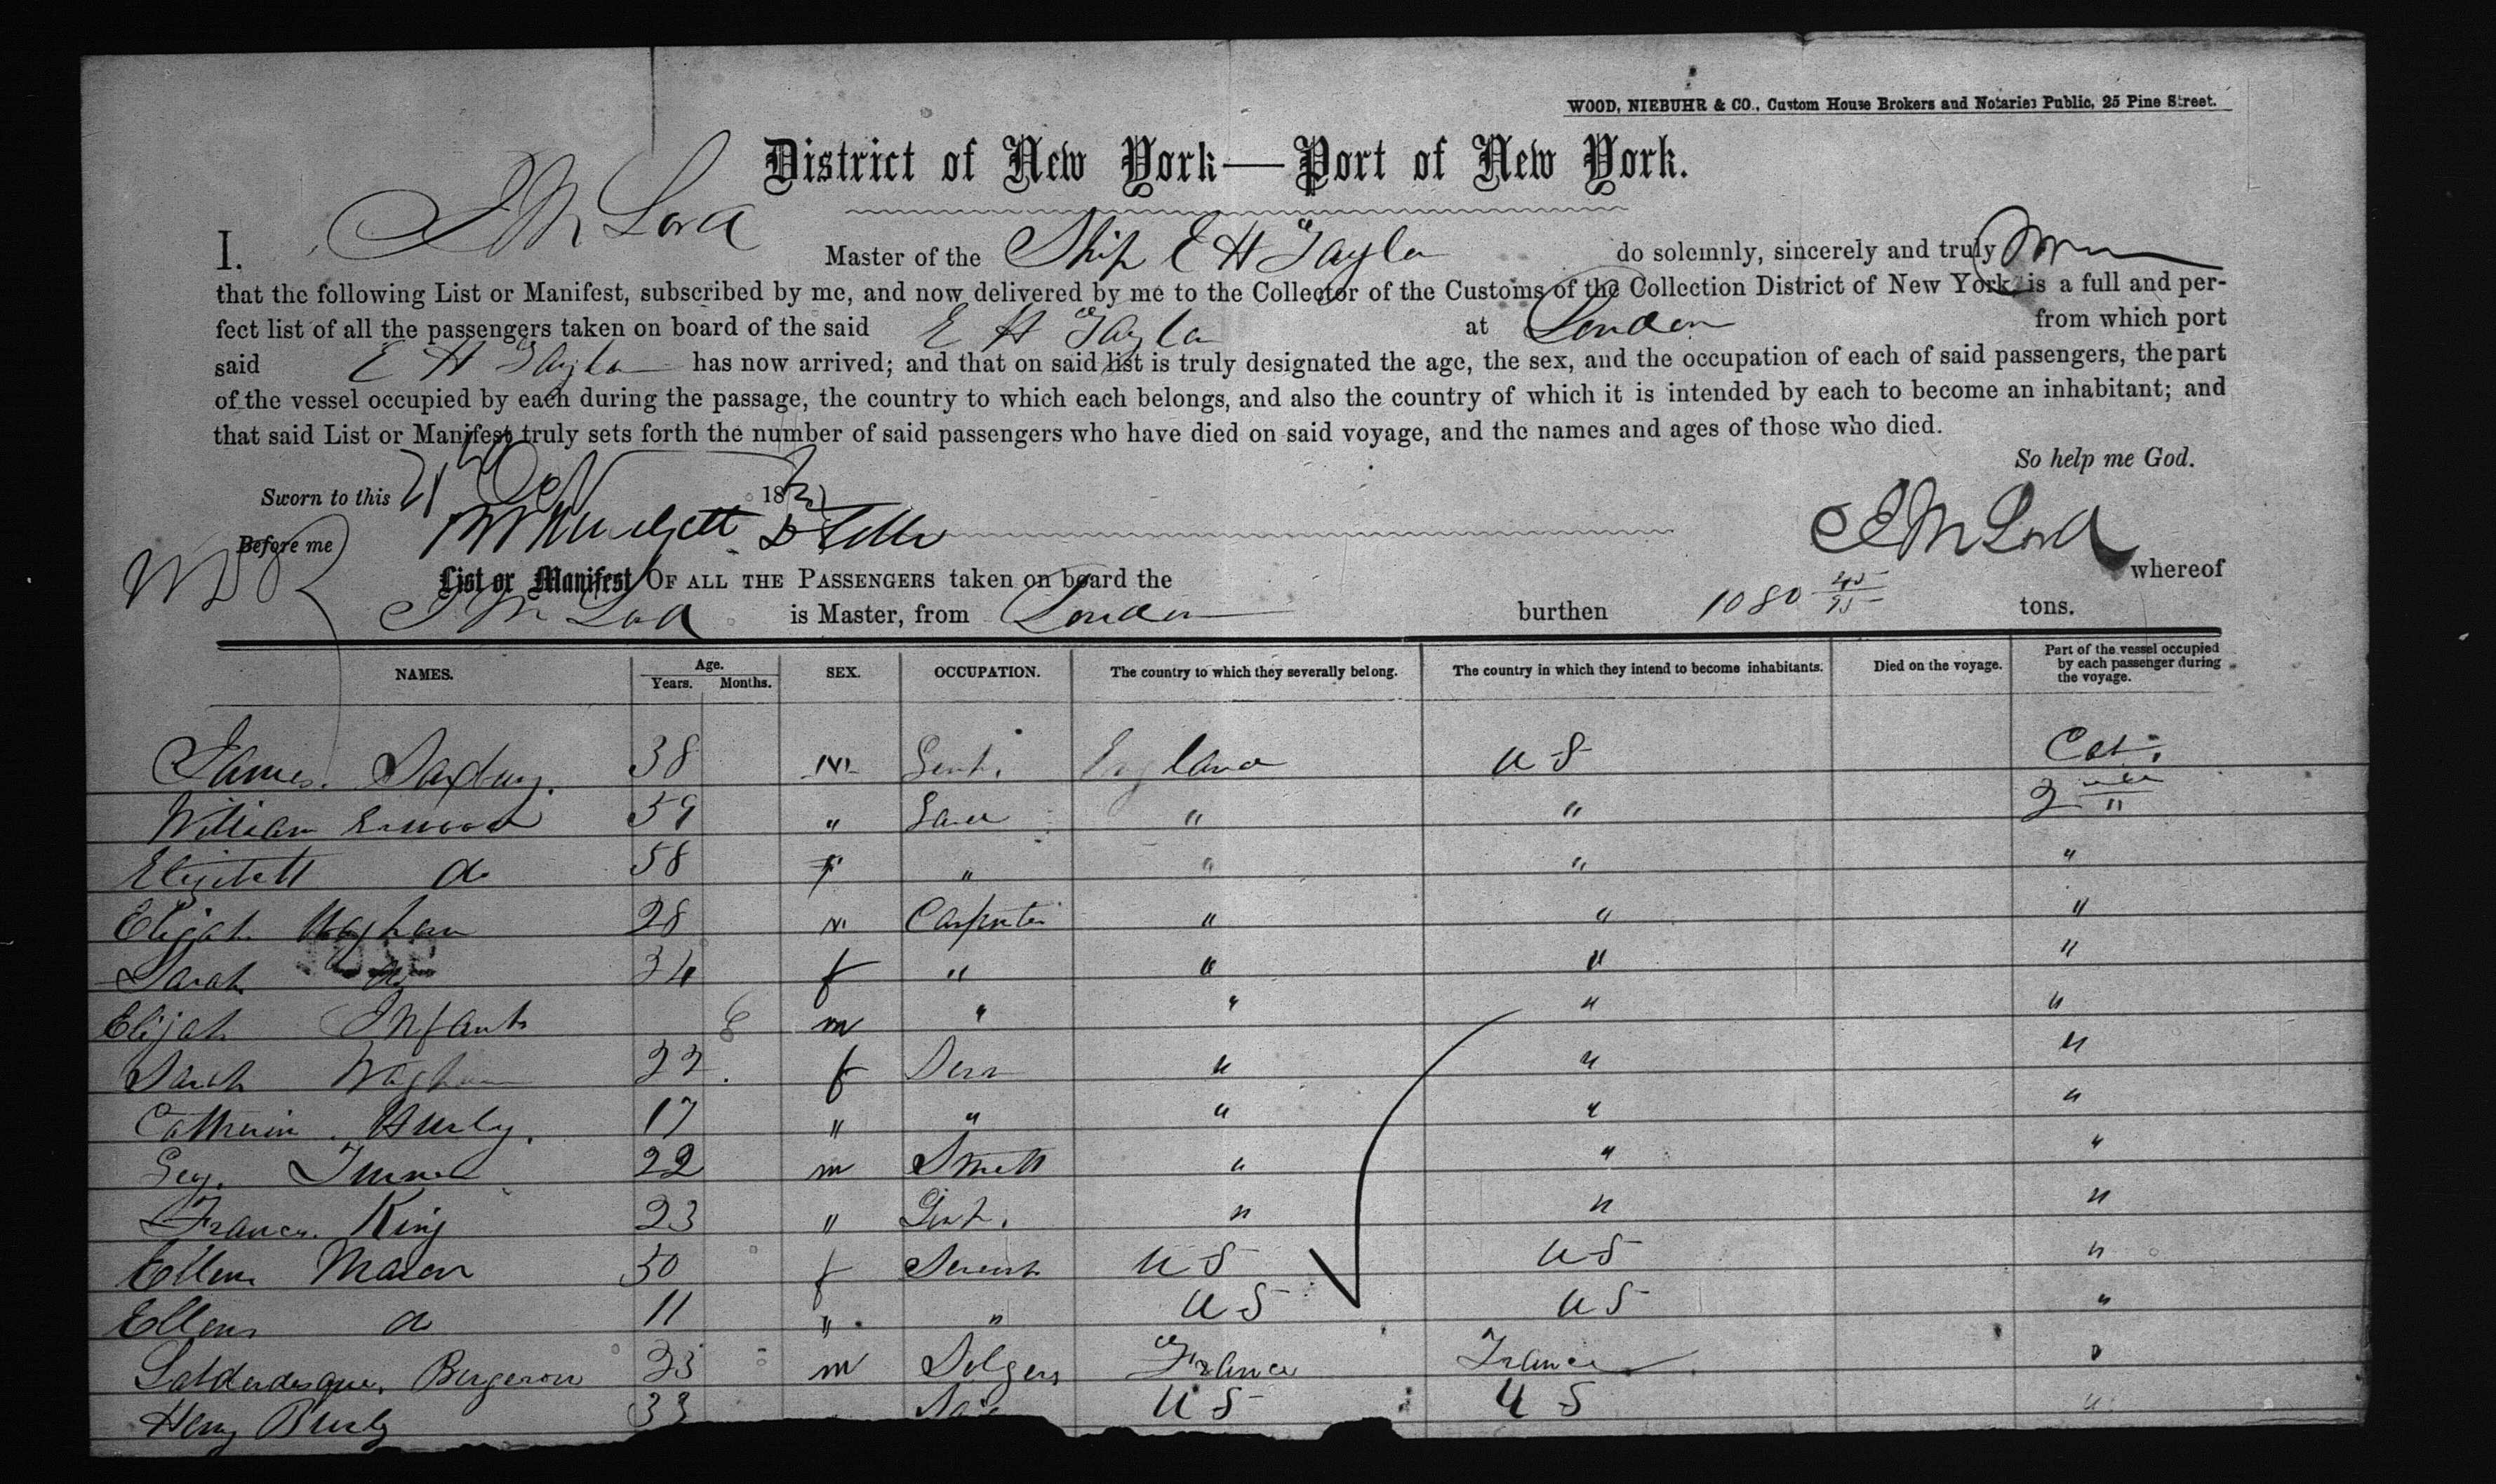 WOOD, NIEBUHR & CO., Custom House Brokers and Notaries Public, 25 Pine Street.
District of New York—Port of New York.
I. J M Lord Master of the Ship E H Taylor do solemnly, sincerely and truly
that the following List or Manifest, subscribed by me, and now delivered by me to the Collector of the Customs of the Collection District of New York, is a full and per-
fect list of all the passengers taken on board of the said E H Taylor at London from which port
said E H Taylor has now arrived; and that on said list is truly designated the age, the sex, and the occupation of each of said passengers, the part
of the vessel occupied by each during the passage, the country to which each belongs, and also the country of which it is intended by each to become an inhabitant; and
that said List or Manifest truly sets forth the number of said passengers who have died on said voyage, and the names and ages of those who died.
So help me God.
Sworn to this 21 18
Before me J M Lord
List or Manifest OF ALL THE PASSENGERS taken on board the whereof
J M Lord is Master, from London burthen 1080 45/95 tons.
NAMES. Age. Years. Months. SEX. OCCUPATION. The country to which they severally belong. The country in which they intend to become inhabitants. Died on the voyage. Part of the vessel occupied by each passenger during the voyage.
James. Saxbury. 38 M Gent. England U S Cab.
William Erwood 59 " " " 2 "
Elizabeth do 58 f " " " "
Elijah 28 m Carpenter " " "
Sarah do 34 f " " " "
Elijah Infant m " " " "
Sarah 22 f " " "
Catherine Hurly. 17 " " " " "
Geo. Turner 22 m Smith " " "
Frances King 23 " Gent. " " "
Ellen Mason 50 f Servant U S U S "
Ellen do 11 " " U S U S "
Bergeron 23 m France France "
Henry Burly 33 U S U S "